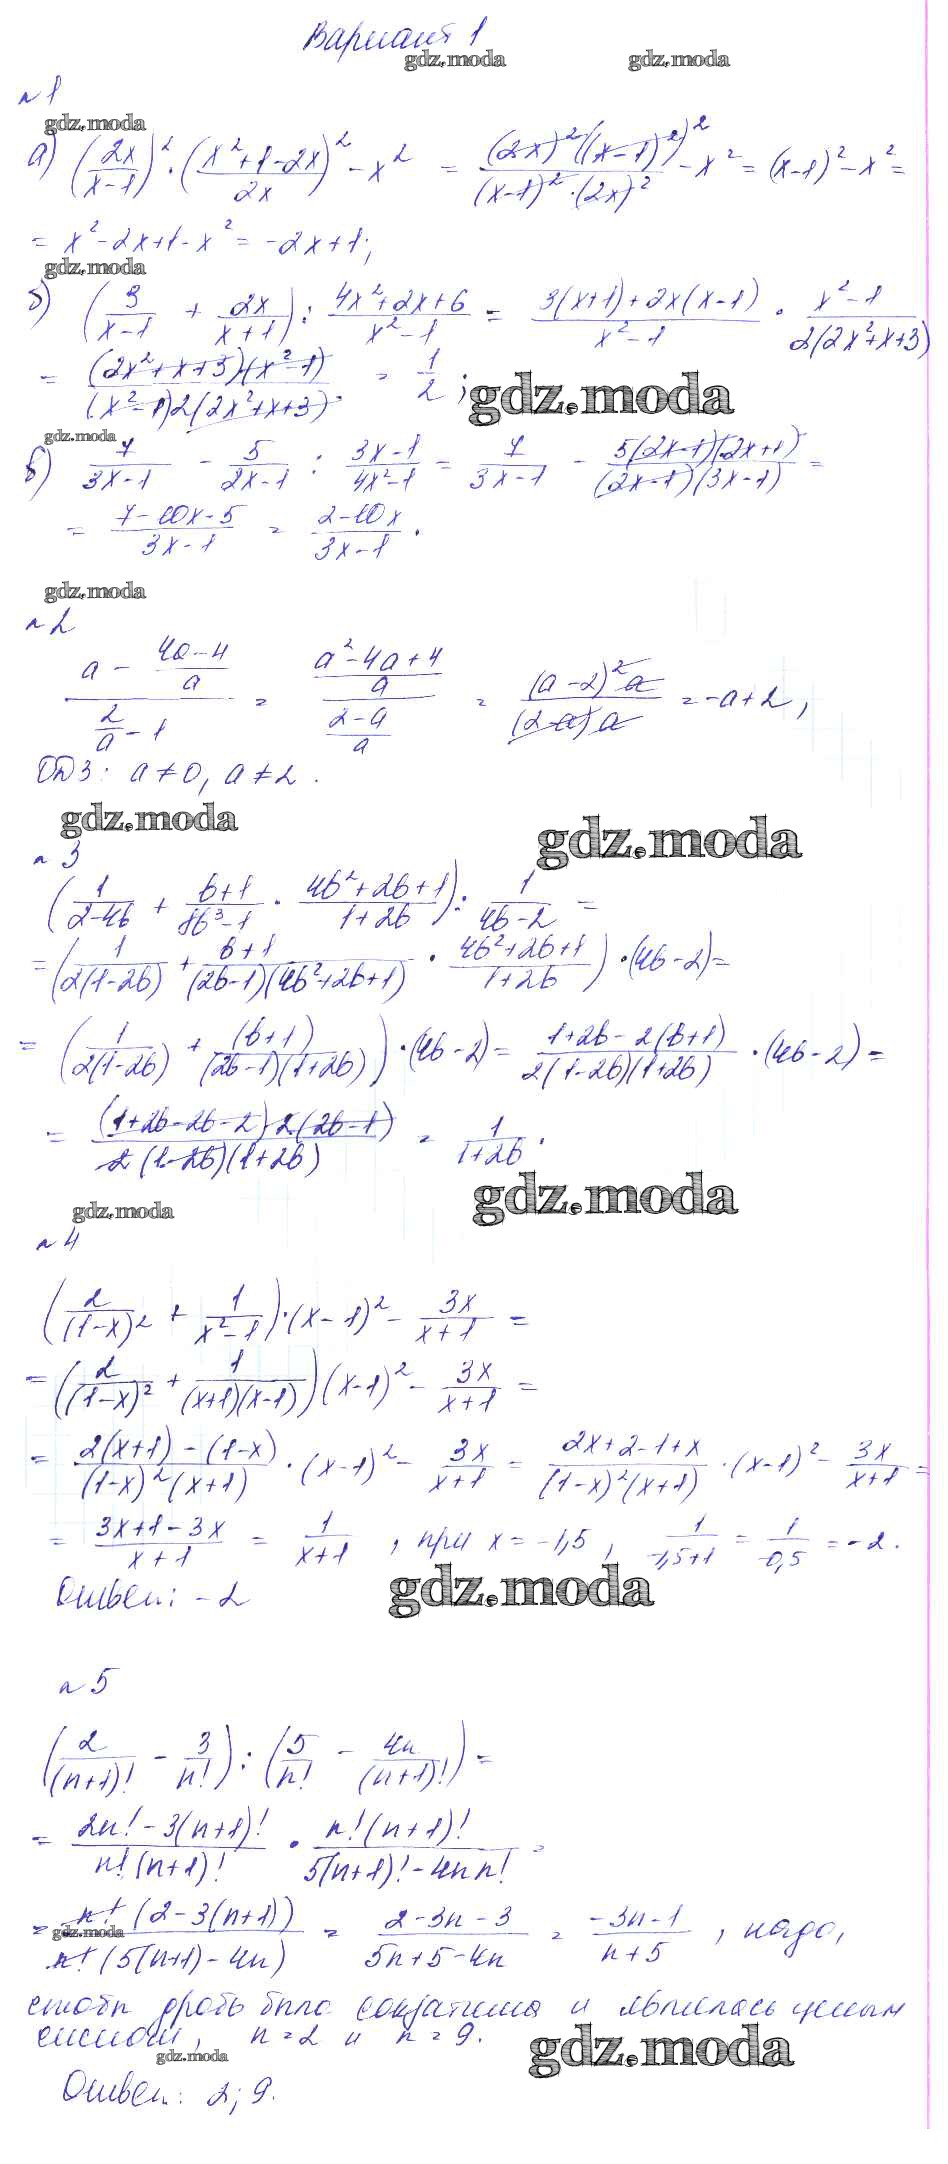 Вариант 1
gdz.moda gdz.moda
№1
gdz.moda
а) (2x/(x-1))² · ((x²+1-2x)/2x)² - x² = (2x)²((x-1)²)²/((x-1)²·(2x)²) - x² = (x-1)² - x² =
= x²-2x+1-x² = -2x+1;
gdz.moda
б) (3/(x-1) + 2x/(x+1)) : (4x²+2x+6)/(x²-1) = (3(x+1)+2x(x-1))/(x²-1) · (x²-1)/(2(2x²+x+3))
= (2x²+x+3)(x²-1)/((x²-1)2(2x²+x+3)) = 1/2;
gdz.moda
gdz.moda
в) 7/(3x-1) - 5/(2x-1) : (3x-1)/(4x²-1) = 7/(3x-1) - 5(2x-1)(2x+1)/((2x-1)(3x-1)) =
= (7-10x-5)/(3x-1) = (2-10x)/(3x-1).
gdz.moda
№2
(a - (4a-4)/a)/(2/a - 1) = ((a²-4a+4)/a)/((2-a)/a) = (a-2)²a/((2-a)a) = -a+2,
ОДЗ: a≠0, a≠2.
gdz.moda
gdz.moda
№3
(1/(2-4b) + (b+1)/(8b³-1) · (4b²+2b+1)/(1+2b)) : 1/(4b-2) =
= (1/(2(1-2b)) + (b+1)/((2b-1)(4b²+2b+1)) · (4b²+2b+1)/(1+2b)) · (4b-2) =
= (1/(2(1-2b)) + (b+1)/((2b-1)(1+2b))) · (4b-2) = (1+2b-2(b+1))/(2(1-2b)(1+2b)) · (4b-2) =
= (1+2b-2b-2)2(2b-1)/(2(1-2b)(1+2b)) = 1/(1+2b).
gdz.moda
gdz.moda
№4
(2/(1-x)² + 1/(x²-1)) · (x-1)² - 3x/(x+1) =
= (2/(1-x)² + 1/((x+1)(x-1)))(x-1)² - 3x/(x+1) =
= (2(x+1)-(1-x))/((1-x)²(x+1)) · (x-1)² - 3x/(x+1) = (2x+2-1+x)/((1-x)²(x+1)) · (x-1)² - 3x/(x+1) =
= (3x+1-3x)/(x+1) = 1/(x+1), при x=-1,5, 1/(-1,5+1) = 1/(-0,5) = -2.
Ответ: -2
gdz.moda
№5
(2/(n+1)! - 3/n!) : (5/n! - 4n/(n+1)!) =
= (2n!-3(n+1)!)/(n!(n+1)!) · n!(n+1)!/(5(n+1)!-4n n!) =
= n!(2-3(n+1))/(n!(5(n+1)-4n)) = (2-3n-3)/(5n+5-4n) = (-3n-1)/(n+5), надо,
gdz.moda
чтобы дробь была сократима и являлась целым
числом, n=2 и n=9.
gdz.moda
gdz.moda
Ответ: 2; 9.